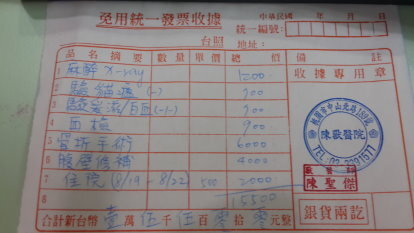 免用統一發票收據
中華民國 年 月 日
統一編號:
台照 地址:
品名摘要 數量 單價 總價 備註
1 麻醉 X-ray 1200
2 驗貓瘟 (-) 700
3 700
4 血檢 900
5 骨折手術 6000
6 腹摩修補 4000
7 住院 (8/19 - 8/22) 500 2000
8 15500
合計新台幣 壹萬 伍千 伍百 零拾 零元整
收據專用章
桃園市中山北路189號
陳敬醫院
TEL:
獸醫師
陳聖傑
銀貨兩訖